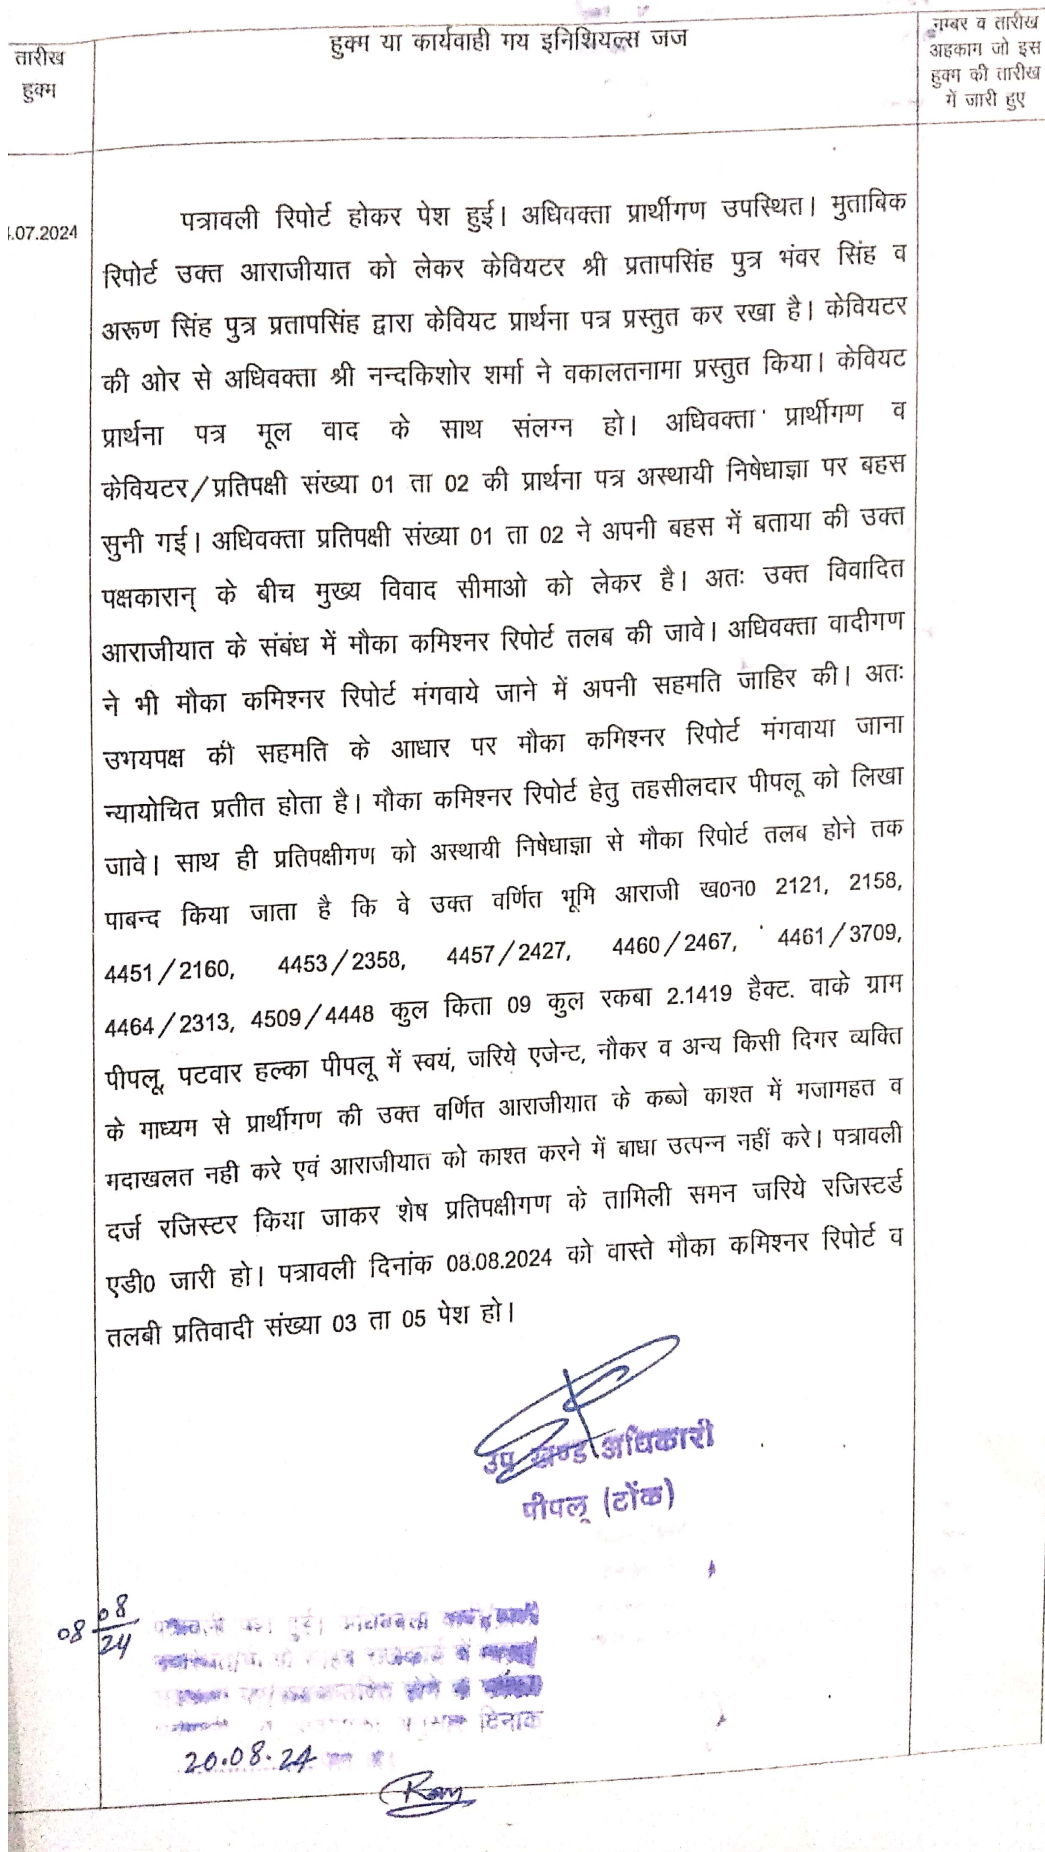 तारीख
हुक्म
हुक्म या कार्यवाही मय इनिशियल्स जज
नम्बर व तारीख
अहकाम जो इस
हुक्म की तारीख
में जारी हुए
.07.2024
पत्रावली रिपोर्ट होकर पेश हुई। अधिवक्ता प्रार्थीगण उपस्थित। मुताबिक
रिपोर्ट उक्त आराजीयात को लेकर केवियटर श्री प्रतापसिंह पुत्र भंवर सिंह व
अरूण सिंह पुत्र प्रतापसिंह द्वारा केवियट प्रार्थना पत्र प्रस्तुत कर रखा है। केवियटर
की ओर से अधिवक्ता श्री नन्दकिशोर शर्मा ने वकालतनामा प्रस्तुत किया। केवियट
प्रार्थना पत्र मूल वाद के साथ संलग्न हो। अधिवक्ता प्रार्थीगण व
केवियटर/प्रतिपक्षी संख्या 01 ता 02 की प्रार्थना पत्र अस्थायी निषेधाज्ञा पर बहस
सुनी गई। अधिवक्ता प्रतिपक्षी संख्या 01 ता 02 ने अपनी बहस में बताया की उक्त
पक्षकारान् के बीच मुख्य विवाद सीमाओ को लेकर है। अतः उक्त विवादित
आराजीयात के संबंध में मौका कमिश्नर रिपोर्ट तलब की जावे। अधिवक्ता वादीगण
ने भी मौका कमिश्नर रिपोर्ट मंगवाये जाने में अपनी सहमति जाहिर की। अतः
उभयपक्ष की सहमति के आधार पर मौका कमिश्नर रिपोर्ट मंगवाया जाना
न्यायोचित प्रतीत होता है। मौका कमिश्नर रिपोर्ट हेतु तहसीलदार पीपलू को लिखा
जावे। साथ ही प्रतिपक्षीगण को अस्थायी निषेधाज्ञा से मौका रिपोर्ट तलब होने तक
पाबन्द किया जाता है कि वे उक्त वर्णित भूमि आराजी ख0न0 2121, 2158,
4451/2160, 4453/2358, 4457/2427, 4460/2467, 4461/3709,
4464/2313, 4509/4448 कुल किता 09 कुल रकबा 2.1419 हैक्ट. वाके ग्राम
पीपलू, पटवार हल्का पीपलू में स्वयं, जरिये एजेन्ट, नौकर व अन्य किसी दिगर व्यक्ति
के माध्यम से प्रार्थीगण की उक्त वर्णित आराजीयात के कब्जे काश्त में मजामहत व
मदाखलत नही करे एवं आराजीयात को काश्त करने में बाधा उत्पन्न नहीं करे। पत्रावली
दर्ज रजिस्टर किया जाकर शेष प्रतिपक्षीगण के तामिली समन जरिये रजिस्टर्ड
एडी0 जारी हो। पत्रावली दिनांक 08.08.2024 को वास्ते मौका कमिश्नर रिपोर्ट व
तलबी प्रतिवादी संख्या 03 ता 05 पेश हो।
उप खण्ड अधिकारी
पीपलू (टोंक)
08 08/24
हुई।
होने से
दिनांक
20.08.24